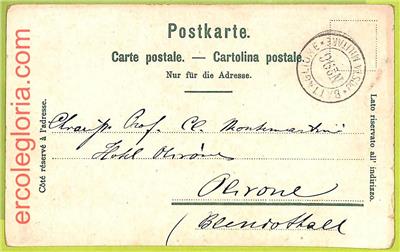 Postkarte.
Carte postale. — Cartolina postale.
Nur für die Adresse.
Côté réservé à l'adresse.
Lato riservato all' indirizzo.
Prof. Cl. Montemartini
Hotel Olivone
Olivone
(Bleniothall
ercolegloria.com